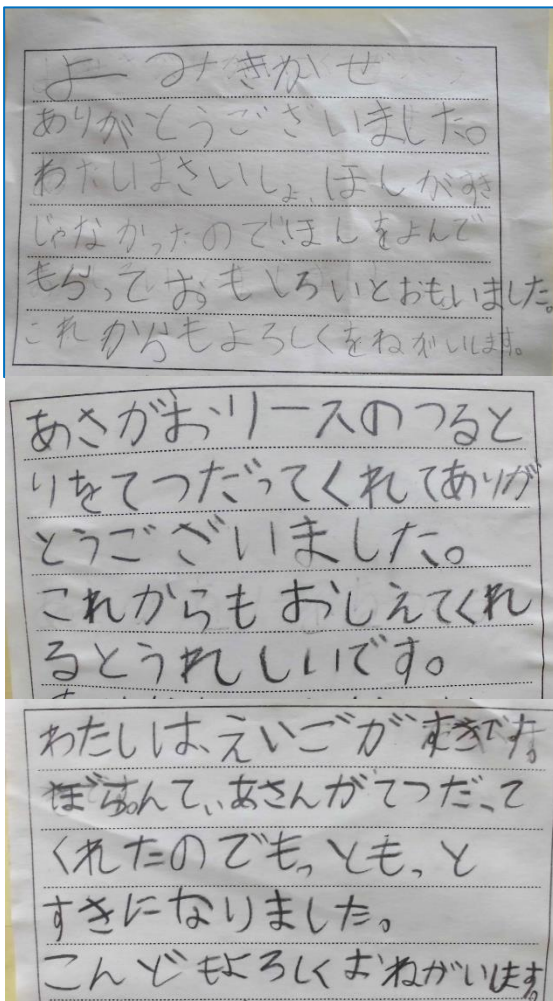 よーみきかせ
ありがとうございました。
わたしはさいしょ、ほんがすき
じゃなかったのでほんをよんで
もらっておもしろいとおもいました。
これからもよろしくをねがいします。
あさがおリースのつると
りをてつだってくれてありが
とうございました。
これからもおしえてくれ
るとうれしいです。
わたしは、えいごがすきです。
ぼらんてぃあさんがてつだって
くれたのでもっともっと
すきになりました。
こんどもよろしくおねがいします。